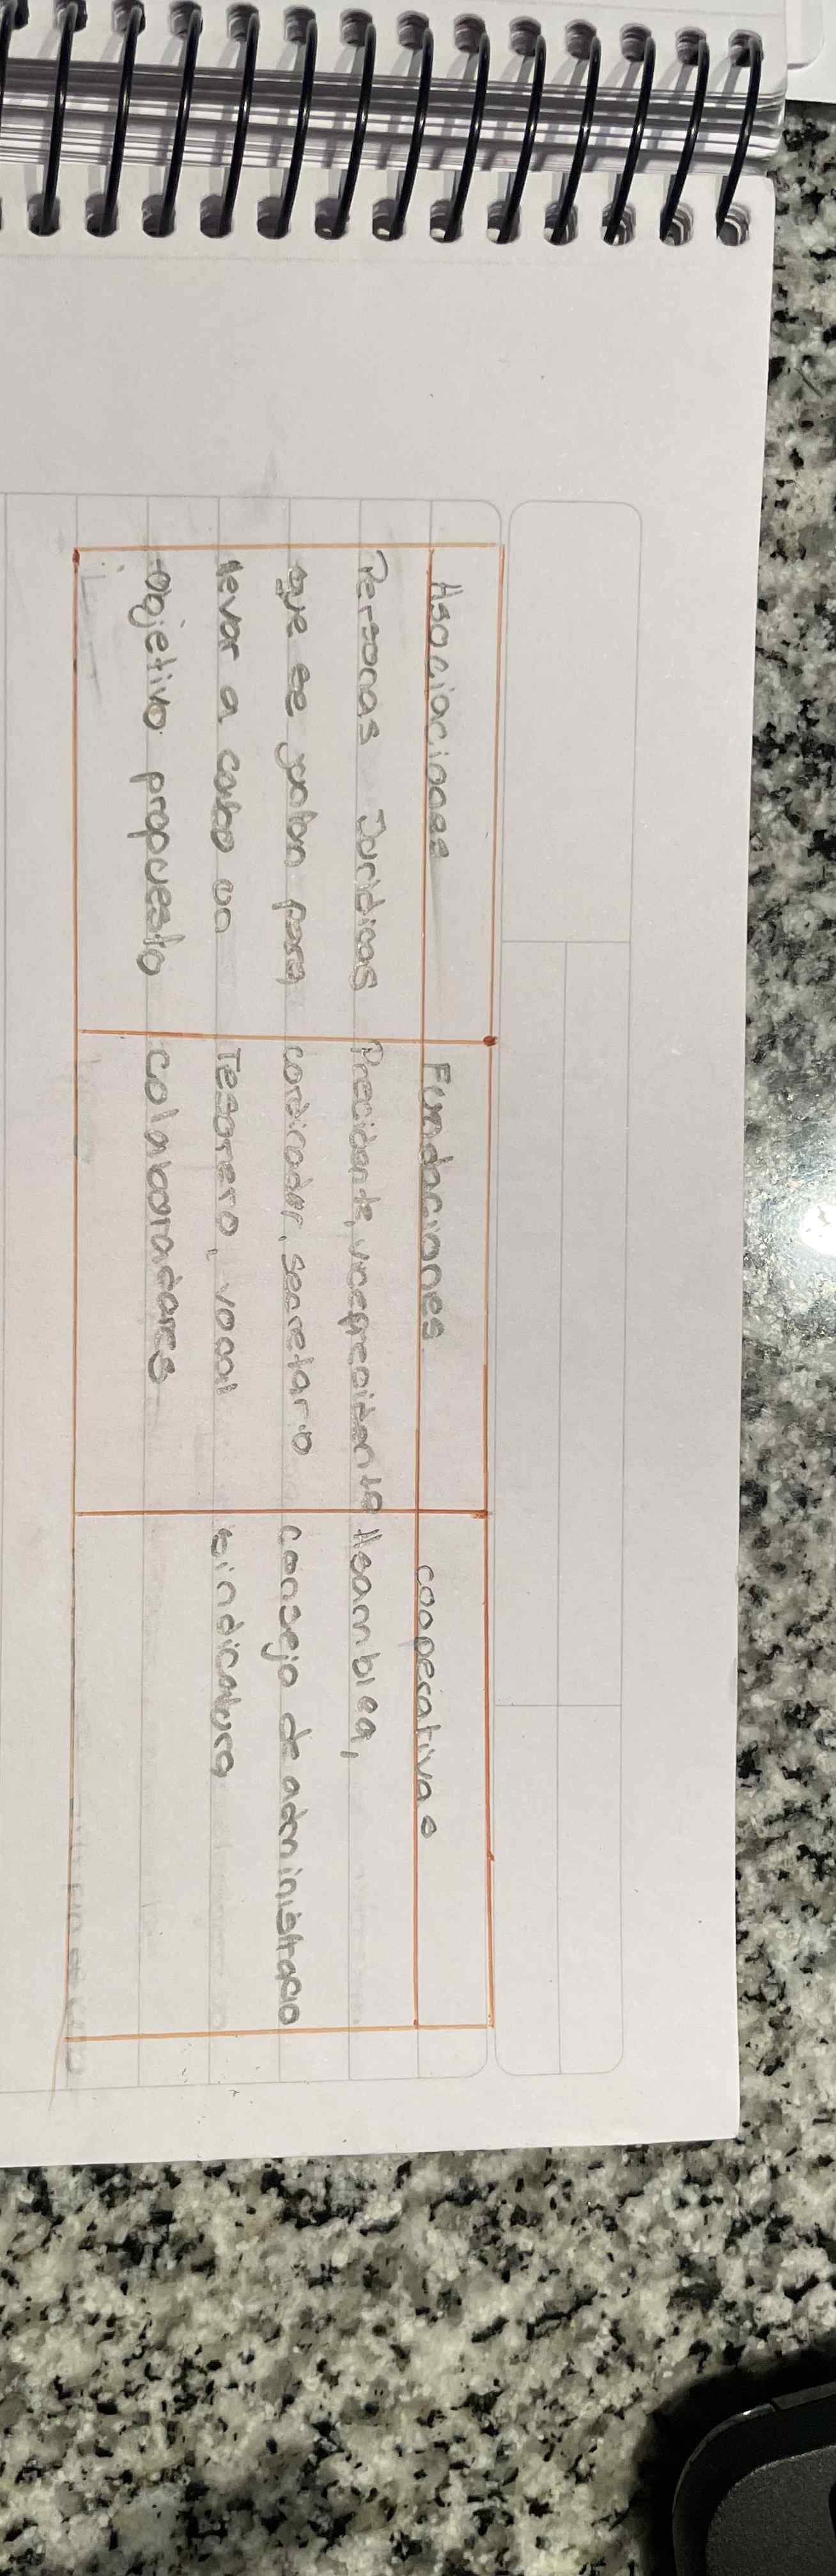 Asociaciones
Personas Juridicas
que se juntan para
llevar a cabo un
objetivo propuesto
Fundaciones
Precidente, vicepresidente
cordinador, secretario
Tesorero, vocal
colaboradores
cooperativas
Asamblea,
consejo de administracio
sindicatura